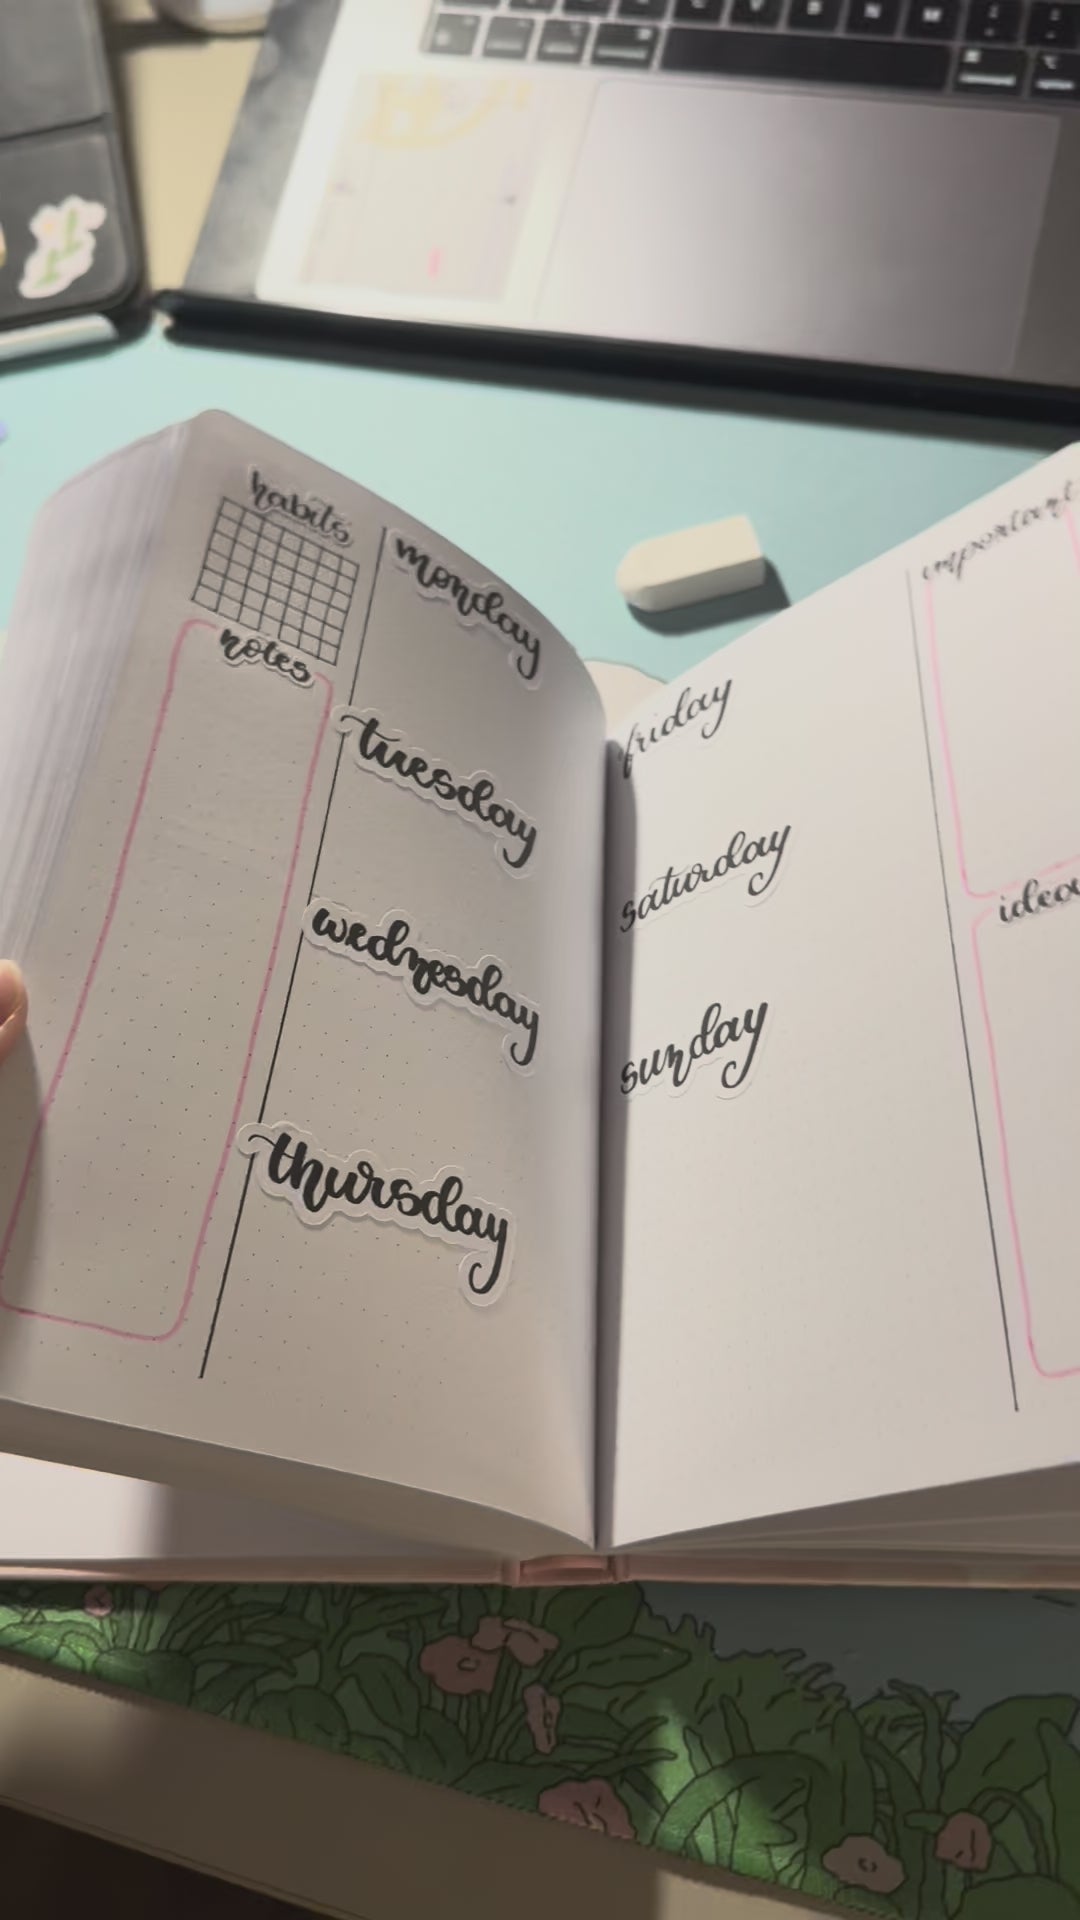 habits
notes
monday
tuesday
wednesday
thursday
friday
saturday
sunday
important